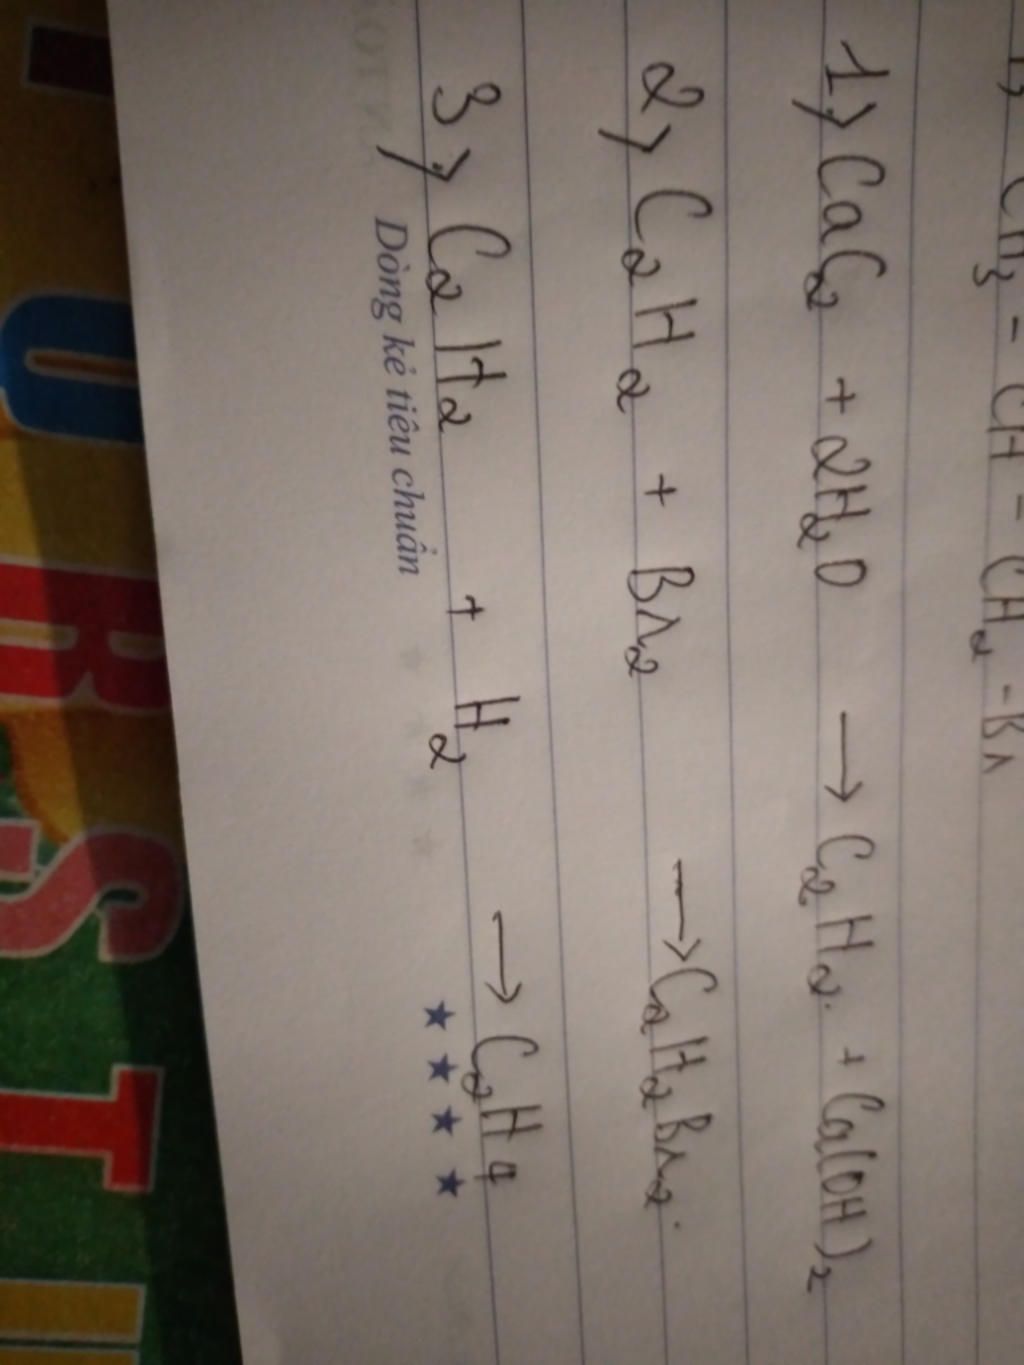 CH₃ - CH - CH₂ - Br
1) CaC₂ + 2H₂O → C₂H₂. + Ca(OH)₂
2) C₂H₂ + Br₂ → C₂H₂Br₂.
3) C₂H₂ + H₂ → C₂H₄
Dòng kẻ tiêu chuẩn ★ ★ ★ ★